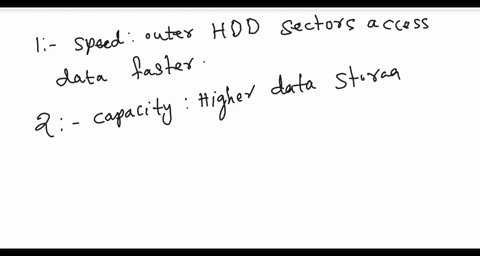 1:- speed: outer HDD sectors access
data faster.
2:- capacity: Higher data storag